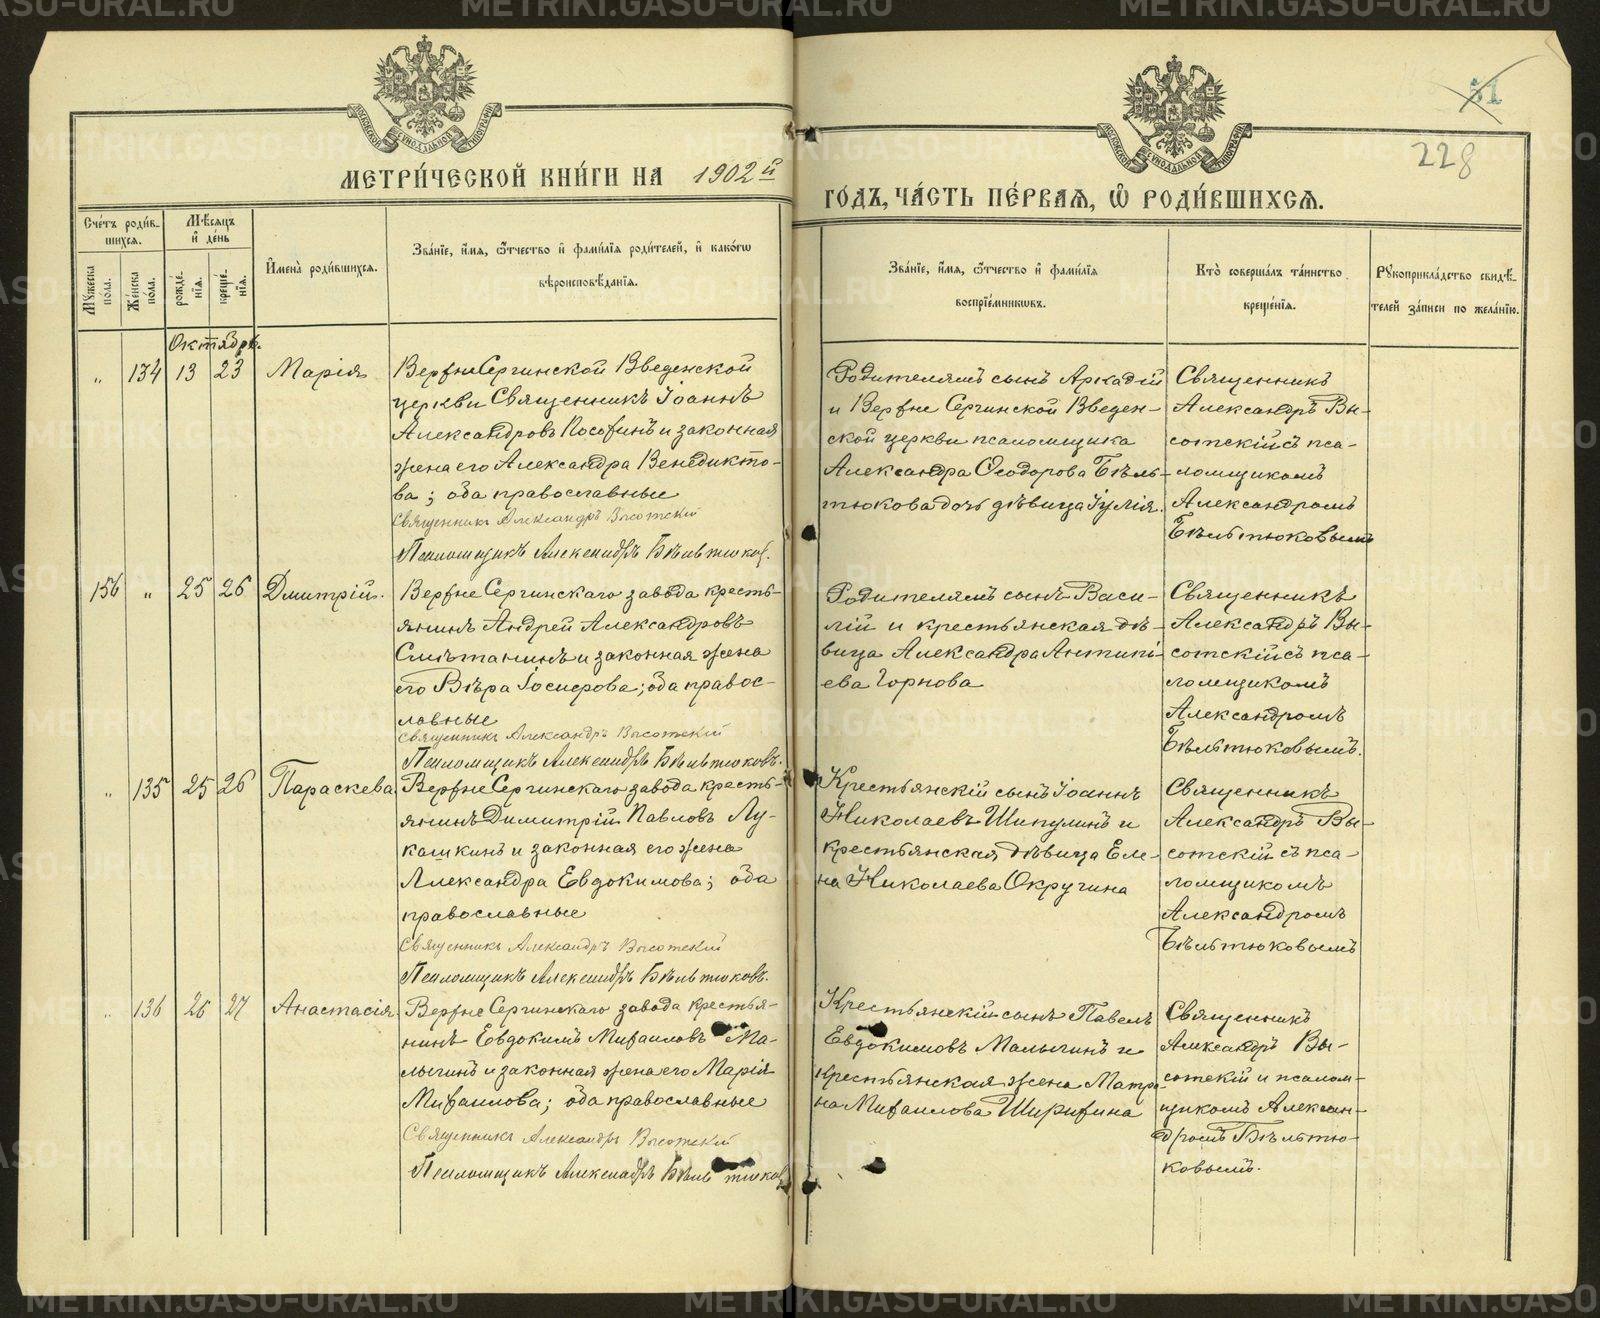 METRIKI.GASU-URAL.RU
51
228
МЕТРИ́ЧЕСКОЙ КНИ́ГИ НА 1902й
ГО́ДЪ, ЧА́СТЬ ПЕ́РВАѦ, Ѡ҆ РОДИ́ВШИХСѦ.
Сче́тъ роди́в-
шихсѧ.
Мѣ́сѧцъ
и҆ де́нь
Мꙋ́жеска
по́ла.
Же́нска
по́ла.
рожде́-
нїѧ.
креще́-
нїѧ.
И҆мена̀ роди́вшихсѧ.
Зва́нїе, и҆́мѧ, ѻ҆́тчество и҆ фами́лїѧ роди́телей, и҆ како́гѡ
вѣроисповѣ́данїѧ.
Зва́нїе, и҆́мѧ, ѻ҆́тчество и҆ фами́лїѧ
воспрїе́мникѡвъ.
Кто̀ соверша́лъ та́инство
креще́нїѧ.
Рꙋкоприкла́дство свидѣ́-
телей за́писи по жела́нїю.
Октябрь.
" 134 13 23 Марія
Верхне Сергинской Введенской
церкви Священникъ Іоаннъ
Александровъ и законная
жена его Александра Венедикто-
ва; оба православные
Священникъ Александръ Высотскій
Псаломщикъ Александръ Бѣльтюковъ.
Родителямъ сынъ Аркадій
и Верхне Сергинской Введен-
ской церкви псаломщика
Александра Ѳеодорова Бѣль-
тюкова дочь дѣвица Іулія.
Священникъ
Александръ Вы-
сотскій съ пса-
ломщикомъ
Александромъ
Бѣльтюковымъ
156 " 25 26 Дмитрій.
Верхне Сергинскаго завода кресть-
янинъ Андрей Александровъ
Смѣтанинъ и законная жена
его Вѣра; оба правос-
лавные
Священникъ Александръ Высотскій
Псаломщикъ Александръ Бѣльтюковъ.
Родителямъ сынъ Васи-
лій и крестьянская дѣ-
вица Александра Антипі-
ева Горнова
Священникъ
Александръ Вы-
сотскій съ пса-
ломщикомъ
Александромъ
Бѣльтюковымъ.
" 135 25 26 Параскева
Верхне Сергинскаго завода кресть-
янинъ Димитрій Павловъ Лу-
кашкинъ и законная его жена
Александра Евдокимова; оба
православные
Священникъ Александръ Высотскій
Псаломщикъ Александръ Бѣльтюковъ.
Крестьянскій сынъ Іоаннъ
Николаевъ Шипулинъ и
крестьянская дѣвица Еле-
на Николаева Окружина
Священникъ
Александръ Вы-
сотскій съ пса-
ломщикомъ
Александромъ
Бѣльтюковымъ
" 136 26 27 Анастасія
Верхне Сергинскаго завода крестья-
нинъ Евдокимъ Михаиловъ Ма-
лыгинъ и законная жена его Марія
Михаилова; оба православные
Священникъ Александръ Высотскій
Псаломщикъ Александръ Бѣльтюковъ
Крестьянскій сынъ Павелъ
Евдокимовъ Малыгинъ и
крестьянская жена Матро-
на Михаилова Ширихина
Священникъ
Александръ Вы-
сотскій и псалом-
щикомъ Алексан-
дромъ Бѣльтю-
ковымъ.